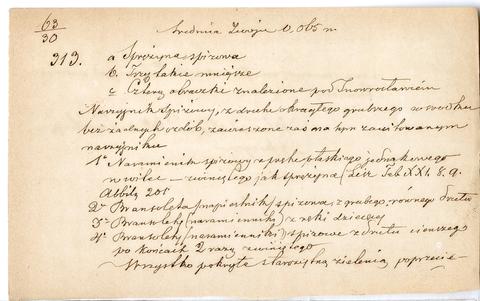 63
30
średnia zwoju 0,065 m.
313. a Sprężyna spiżowa
b. Trzy takie mniejsze
c. Cztery obrączki znalezione pod Inowrocławiem
Naszyjnik spiżowy, z drutu okrągłego grubszego w środku
bez żadnych ozdób, zawieszone zaś na tym zawiłowanym
naszyjniku
1° Naramiennik spiżowy z płaskiego jednakowego
zwiniętego jak sprężyna (Leir Tab XXI. 8. 9.
Abbild 201
2° Bransoleta (napięstnik) spiżowa, z grubego, równego drutu
3° Bransolety (naramienniki) z ręki dziecięcej
4° Bransolety (naramienniki) spiżowe z drutu cienszego
po końcach 2 razy zwiniętego
Wszystko pokryte starożytną zielenią, poprzecie-